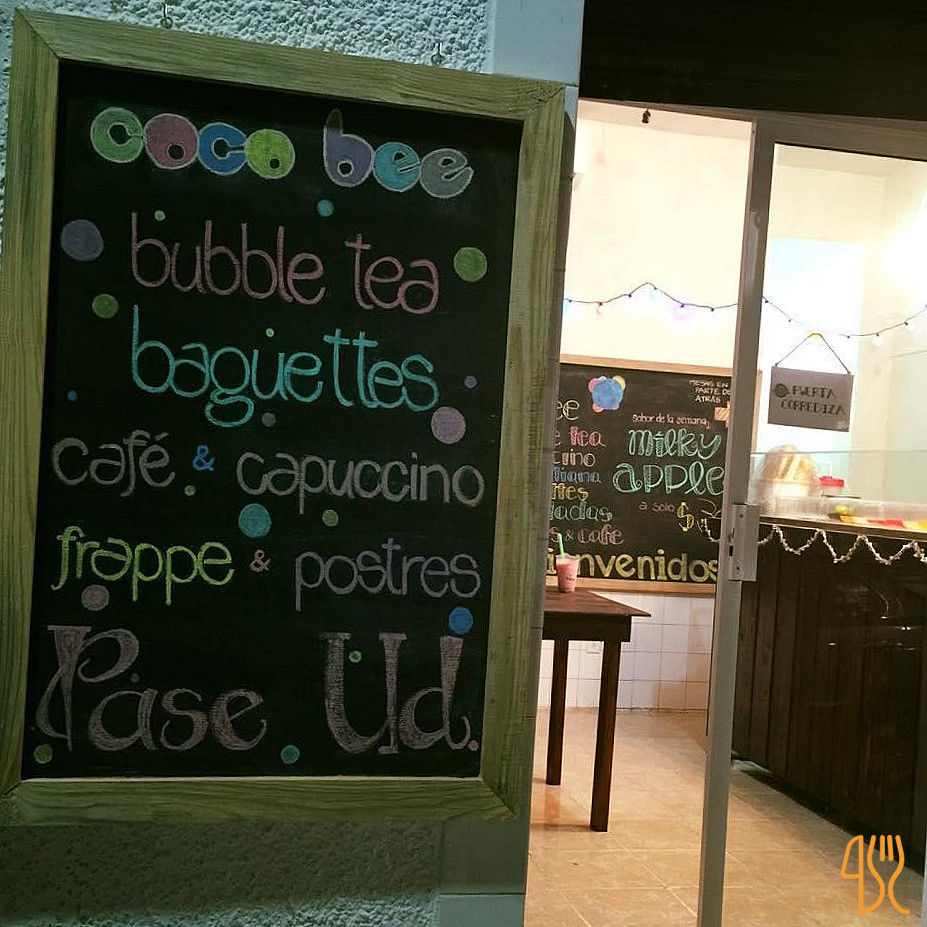 coco bee
bubble tea
baguettes
café & capuccino
frappe & postres
Pase Ud.
MESAS EN
PARTE DE
ATRÁS
Sabor de la semana
milky
apple
a solo $
tea
& café
PUERTA
CORREDIZA